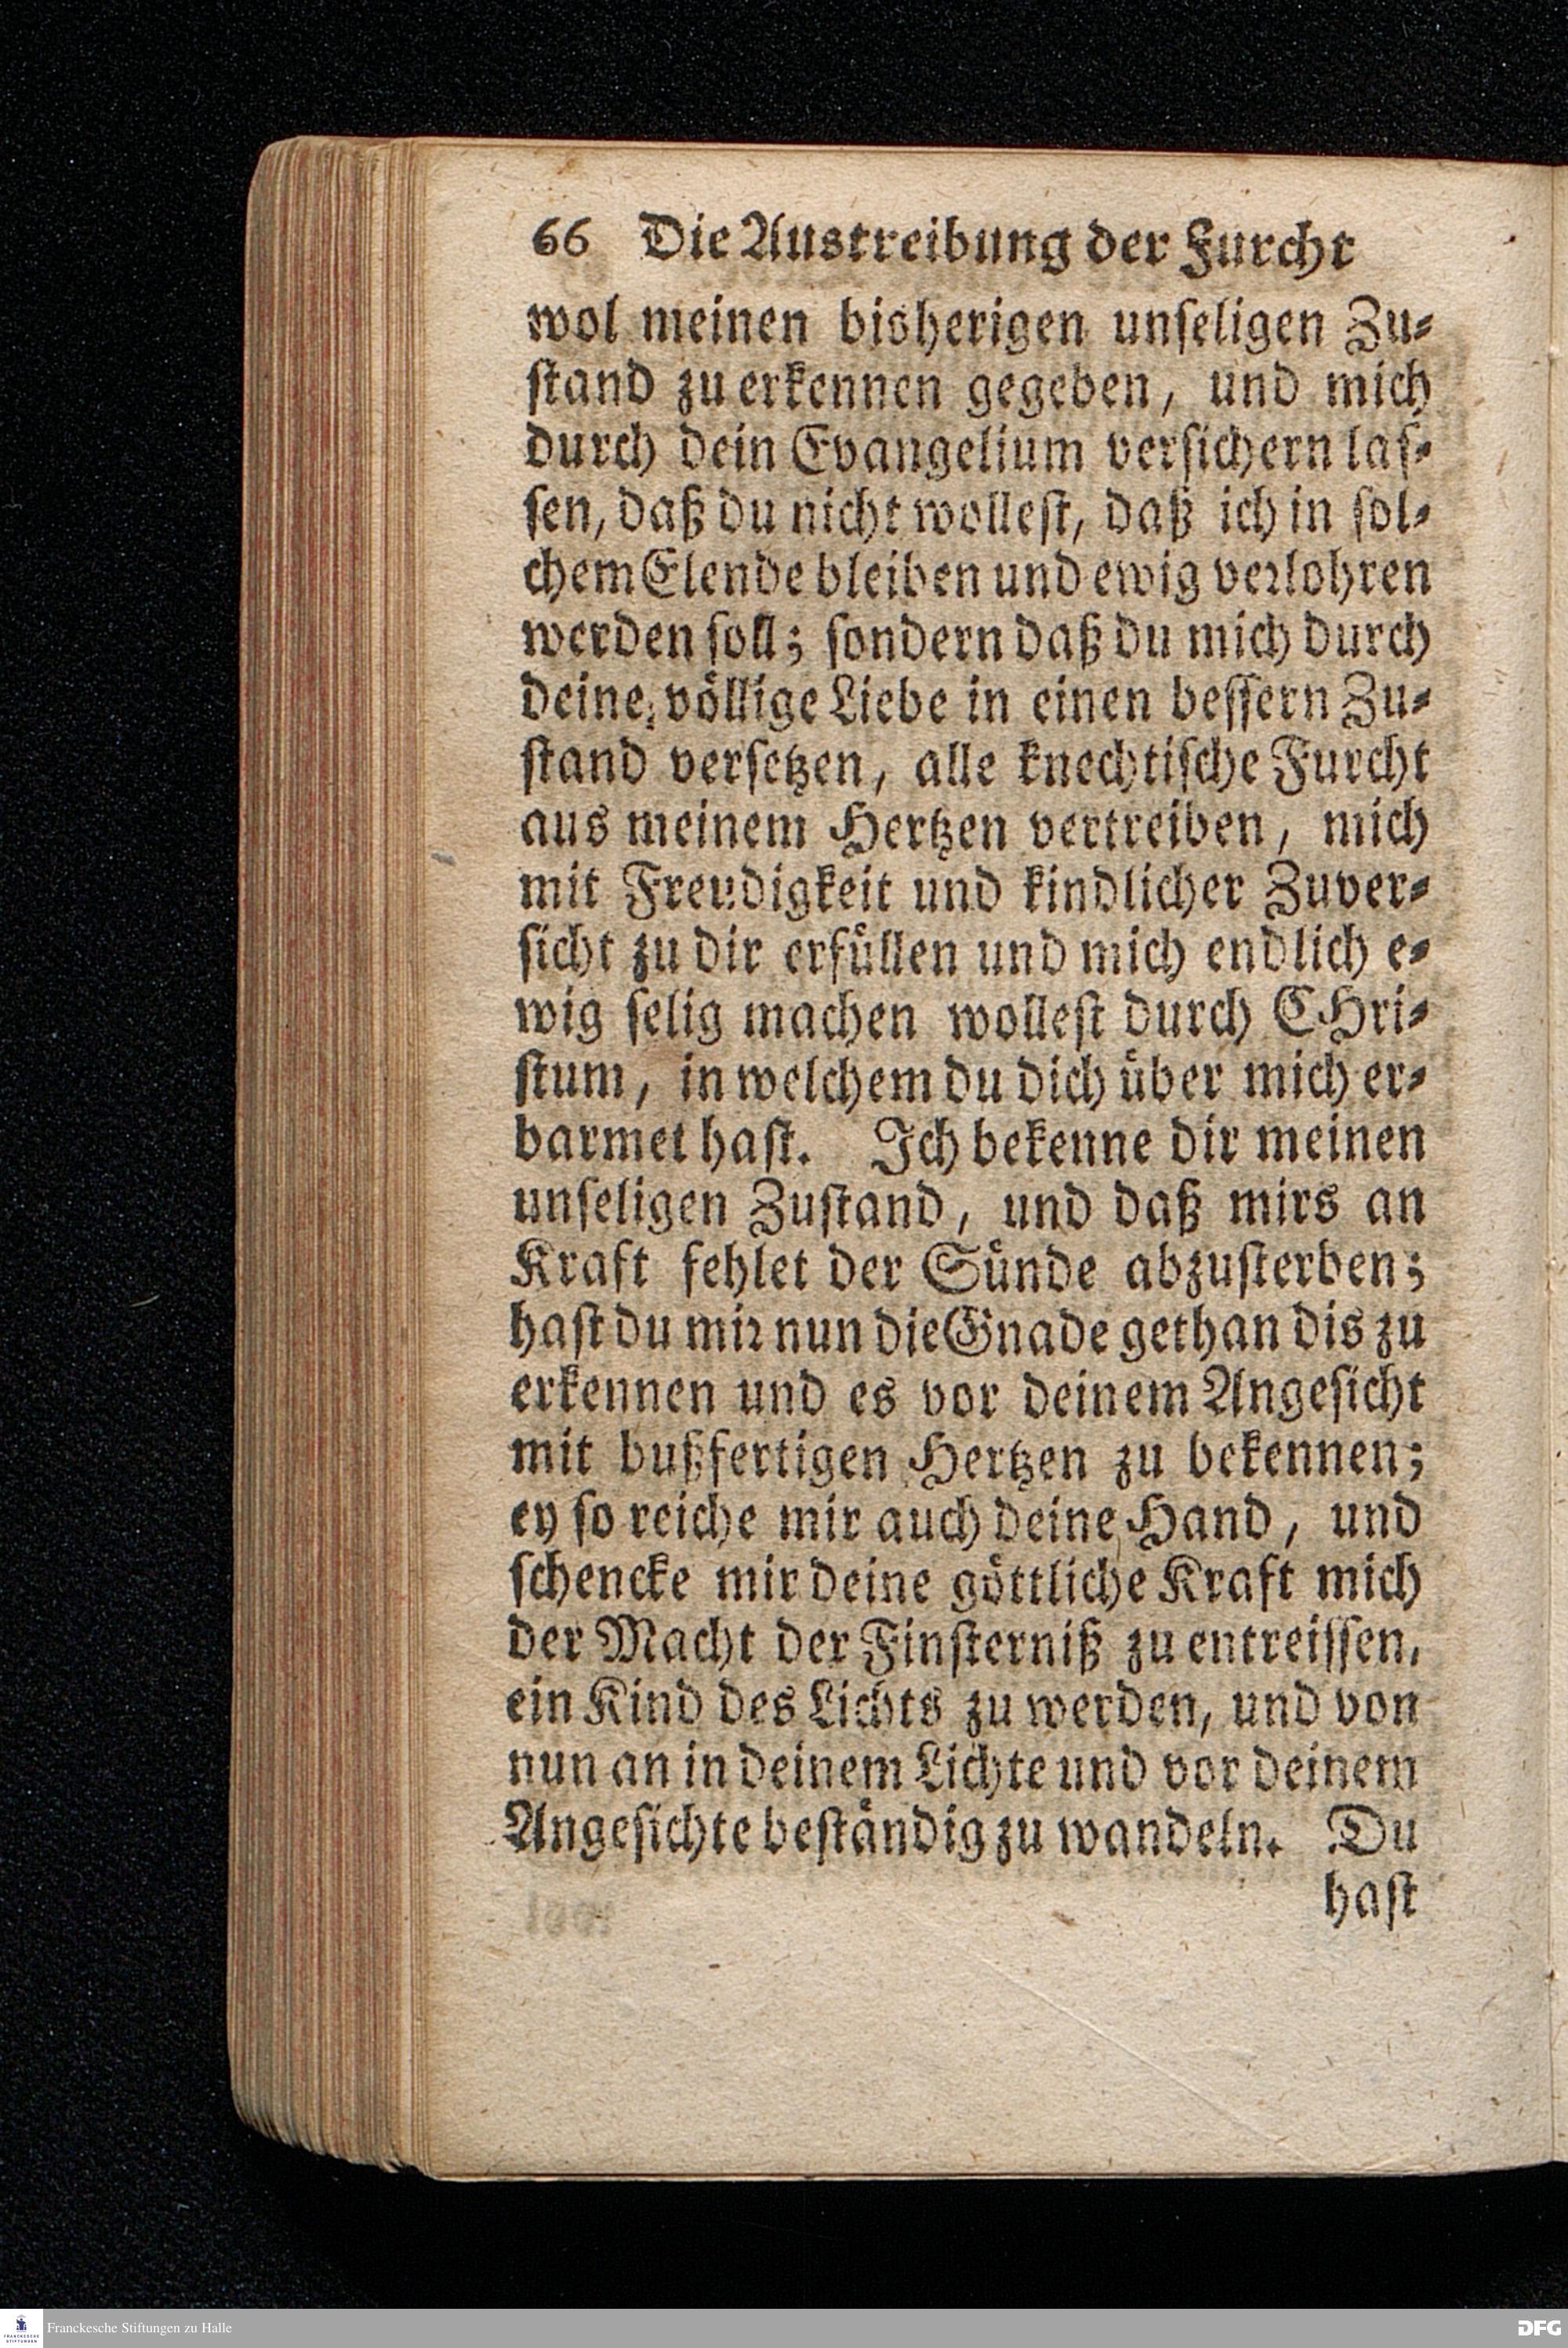 66 Die Austreibung der Furcht
wol meinen bisherigen unſeligen Zu⸗
ſtand zu erkennen gegeben, und mich
durch dein Evangelium verſichern laſ⸗
ſen, daß du nicht wolleſt, daß ich in ſol⸗
chem Elende bleiben und ewig verlohren
werden ſoll; ſondern daß du mich durch
deine völlige Liebe in einen beſſern Zu⸗
ſtand verſetzen, alle knechtiſche Furcht
aus meinem Hertzen vertreiben, mich
mit Freudigkeit und kindlicher Zuver⸗
ſicht zu dir erfüllen und mich endlich e⸗
wig ſelig machen wolleſt durch CHri⸗
ſtum, in welchem du dich über mich er⸗
barmet haſt. Ich bekenne dir meinen
unſeligen Zuſtand, und daß mirs an
Kraft fehlet der Sünde abzuſterben;
haſt du mir nun die Gnade gethan dis zu
erkennen und es vor deinem Angeſicht
mit bußfertigen Hertzen zu bekennen;
ey ſo reiche mir auch deine Hand, und
ſchencke mir deine göttliche Kraft mich
der Macht der Finſterniß zu entreiſſen,
ein Kind des Lichts zu werden, und von
nun an in deinem Lichte und vor deinem
Angeſichte beſtändig zu wandeln. Du
haſt
Franckesche Stiftungen zu Halle
DFG